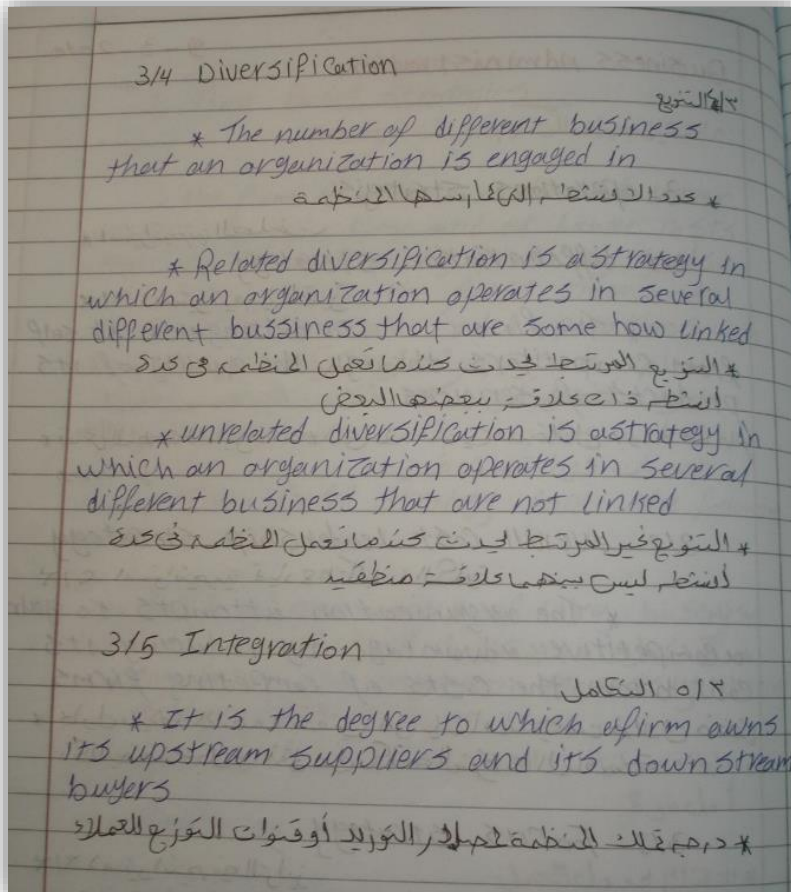 3/4 Diversification
٤/٣ التنويع
* The number of different business
that an organization is engaged in
* عدد الانشطه التى تمارسها المنظمة
* Related diversification is a strategy in
which an organization operates in several
different bussiness that are some how linked
* التنويع المرتبط يحدث عندما تعمل المنظمه فى عدة
أنشطه ذات علاقة ببعضها البعض
* unrelated diversification is a strategy in
which an organization operates in several
different business that are not linked
* التنويع غير المرتبط يحدث عندما تعمل المنظمه فى عدة
أنشطه ليس بينهما علاقة منطقيه
3/5 Integration
٥/٣ التكامل
* It is the degree to which a firm owns
its upstream suppliers and its down stream
buyers
* درجة تملك المنظمة لمصادر التوريد أو قنوات التوزيع للعملاء